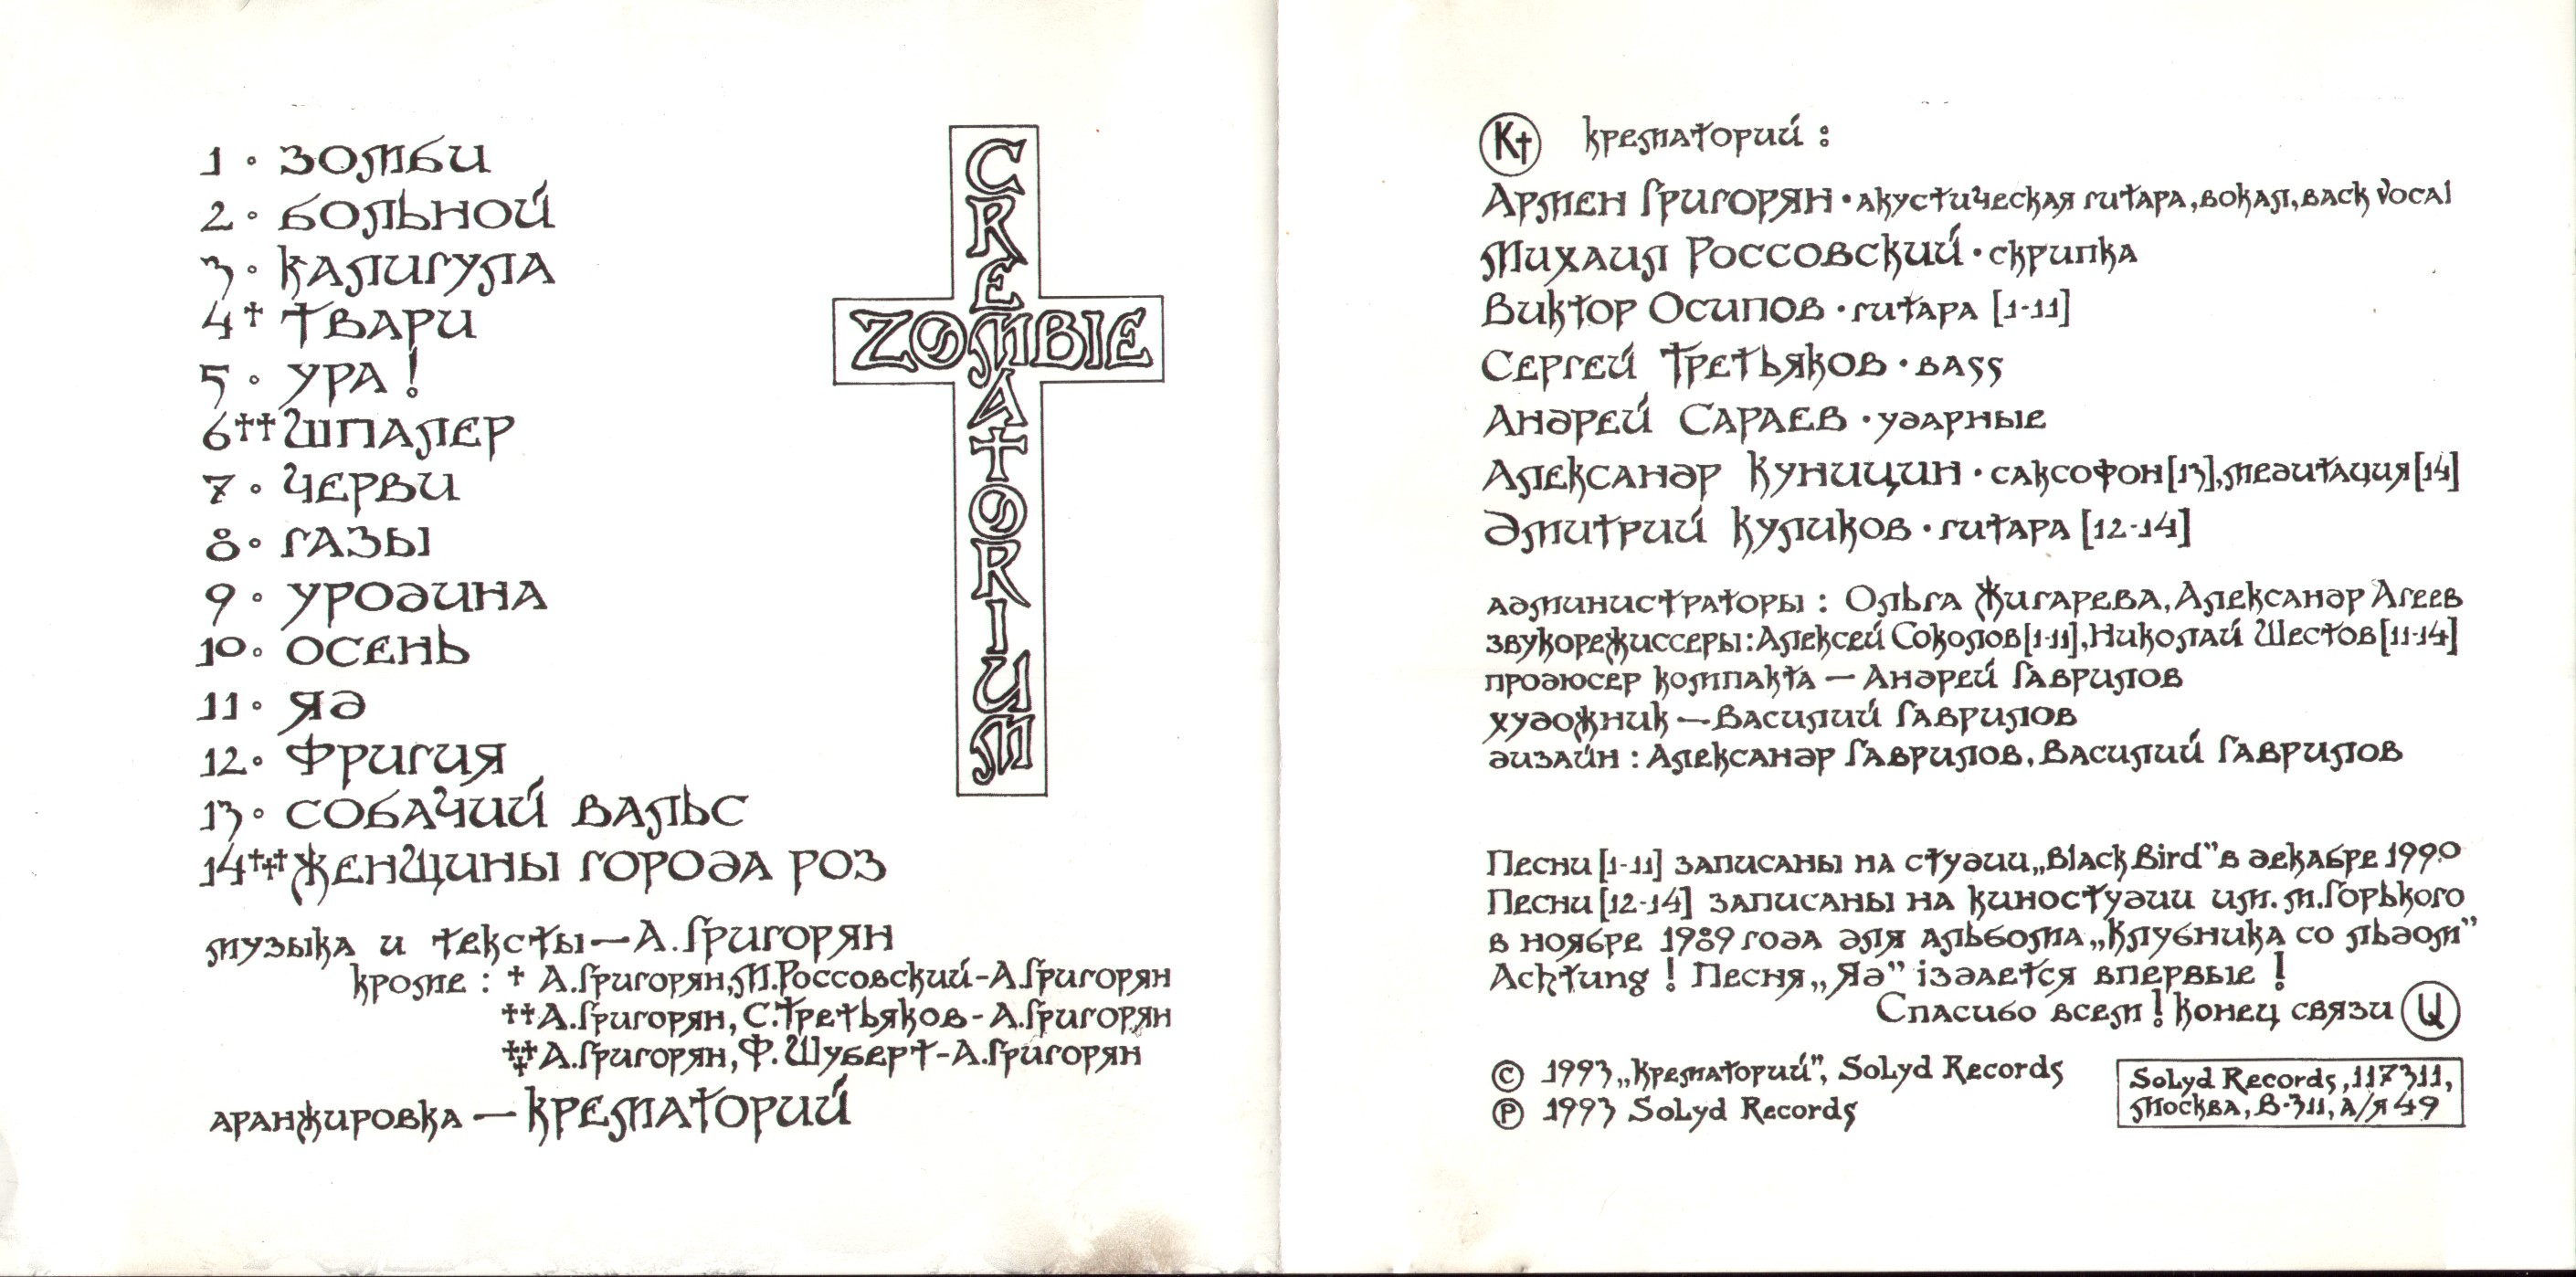 1 ∘ зомби
2 ∘ больной
3 ∘ калигула
4† твари
5 ∘ ура!
6†† шпалер
7 ∘ черви
8 ∘ газы
9 ∘ уродина
10 ∘ осень
11 ∘ яд
12 ∘ фригия
13 ∘ собачий вальс
14††† женщины города роз
CREMATORIUM
ZOMBIE
музыка и тексты — А. Григорян
кроме : † А. Григорян, М. Россовский - А. Григорян
†† А. Григорян, С. Третьяков - А. Григорян
††† А. Григорян, Ф. Шуберт - А. Григорян
аранжировка — Крематорий
К† Крематорий :
Армен Григорян • акустическая гитара, вокал, back vocal
Михаил Россовский • скрипка
Виктор Осипов • гитара [1-11]
Сергей Третьяков • bass
Андрей Сараев • ударные
Александр Куницин • саксофон [13], медитация [14]
Дмитрий Куликов • гитара [12-14]
администраторы : Ольга Жигарева, Александр Агеев
звукорежиссеры : Алексей Соколов [1-11], Николай Шестов [11-14]
продюсер компакта — Андрей Гаврилов
художник — Василий Гаврилов
дизайн : Александр Гаврилов, Василий Гаврилов
Песни [1-11] записаны на студии „Black Bird” в декабре 1990
Песни [12-14] записаны на киностудии им. М. Горького
в ноябре 1989 года для альбома „Клубника со льдом”
Achtung ! Песня „Яд” iздается впервые !
Спасибо всем ! Конец связи
© 1993 „Крематорий”, SoLyd Records
℗ 1993 SoLyd Records
SoLyd Records, 117311,
Москва, В-311, а/я 49